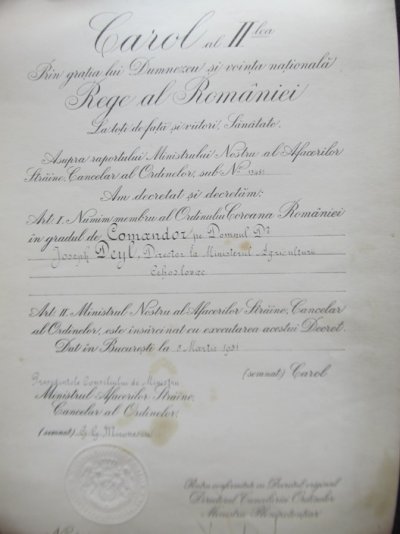 Carol al II lea
Prin grația lui Dumnezeu și voința națională
Rege al României
La toți de față și viitori, Sănătate.
Asupra raportului Ministrului Nostru al Afacerilor
Străine, Cancelar al Ordinelor, sub Nº
Am decretat și decretăm:
Art. I. Numim membru al Ordinului Coroana României
în gradul de Comandor pe Domnul Dr
Joseph Deyl, Director la Ministerul Agriculturii
Cehoslovac
Art. II. Ministrul Nostru al Afacerilor Străine, Cancelar
al Ordinelor, este însărcinat cu executarea acestui Decret.
Dat în București la 5 Martie 1931
(semnat) Carol
Președintele Consiliului de Miniștri
Ministrul Afacerilor Străine,
Cancelar al Ordinelor,
(semnat) G. G. Mironescu
Pentru conformitate cu Decretul original
Directorul Cancelariei Ordinelor
Ministru Plenipotențiar